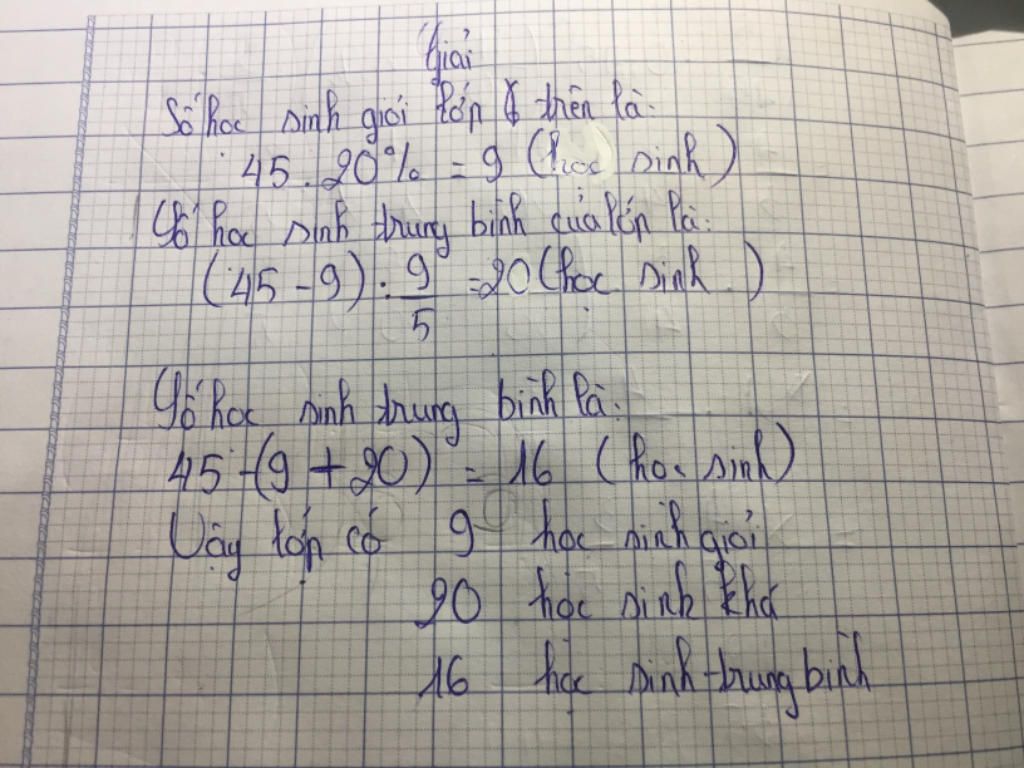 Giải
Số học sinh giỏi lớp trên là:
45 . 20% = 9 (học sinh)
Số học sinh trung bình của lớp là:
(45 - 9) : 9/5 = 20 (học sinh)
Số học sinh trung bình là:
45 - (9 + 20) = 16 (học sinh)
Vậy lớp có 9 học sinh giỏi
20 học sinh khá
16 học sinh trung bình